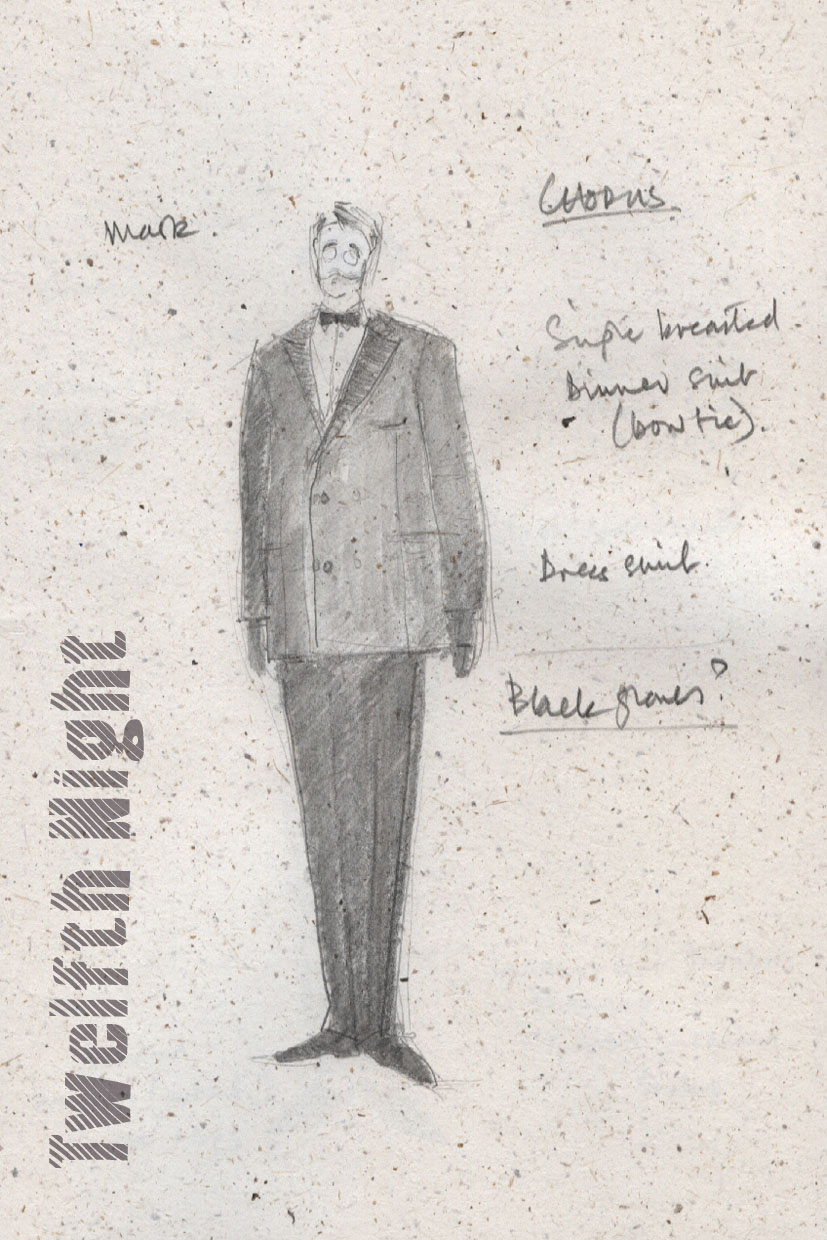 CHORUS.
Mask.
Single breasted
Dinner suit
(bow tie).
Dress shirt.
Black gloves?
Twelfth Night